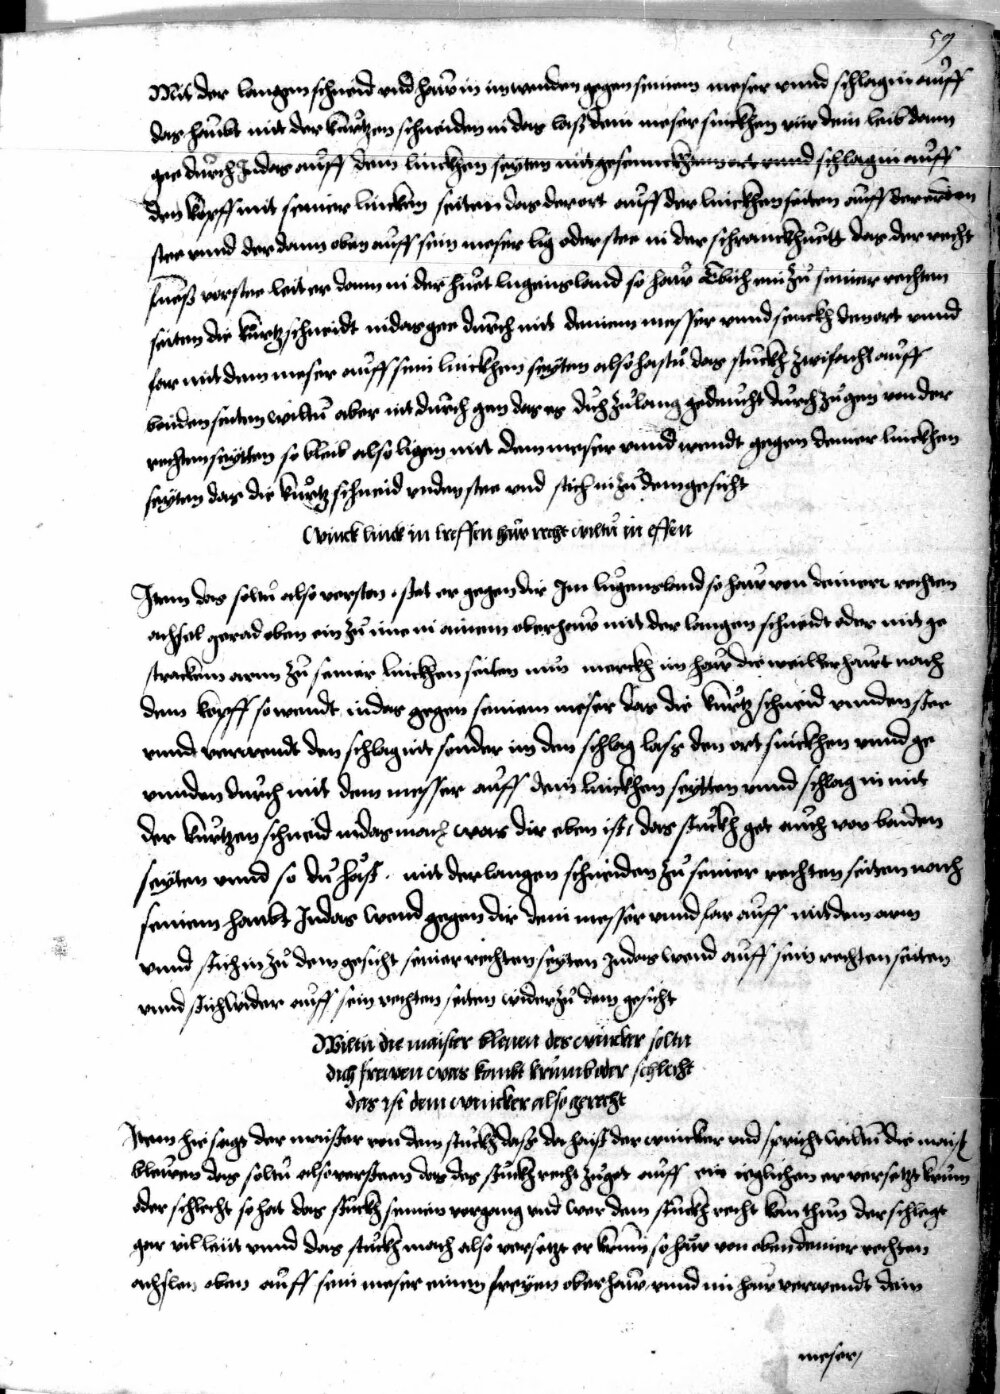 59
Mit der langen schneid vnd haw in inwenden gegen seinem meser vnnd schlag in auff
das haubt mit der kurtzen schneiden in das laß dein meser sinckhen für dein leib dann
gee durch Indas auff dein linckhen seyten mit gesenncktem ort vnnd schlag in auff
den kopff mit seiner lincken seiten das der ort auff der linckhen seiten auff der erden
stee vnnd der dann oben auff sein meser lig oder stee in der schranckhuett das der recht
fuess vorstee leit er dann in der huet lugensland so haw Euch ein zu seiner rechten
seiten die kurtz schneidt indas gee durch mit deinem messer vnnd senckh den ort vnnd
far mit dem meser auff sein linckhen seyten also hastu das stuckh zwifacht auff
baiden seiten wiltu aber nit durch gen das es dich zu lang gedaucht durch zu gen von der
rechten seytten so bleib also ligen mit dem meser vnnd wendt gegen deiner linckhen
seyten das die kurtz schneid vnden stee vnd stich in zu dem gesicht
Winck linck in treffen haw recht wiltu in effen
Item das soltu also versten stet er gegen dir Im lugensland so haw von deiner rechten
achsel gerad oben ein zu ime in ainem oberhaw mit der langen schneidt oder mit ge
stracktem arm zu seiner linckhen seiten nun merckh im haw die weil er haut nach
dem kopff so wendt indas gegen seinem meser das die kurtz schneid vnnden stee
vnnd verwendt den schlag mit sonder in dem schlag lass den ort sinckhen vnnd ge
vnnden durch mit dem messer auff dein linckhen seytten vnnd schlag in mit
der kurtzen schneid indas mach was dir eben ist das stuckh get auch von baiden
seyten vnnd so du hast mit der langen schneiden zu seiner rechten seiten nach
seinem haubt Indas wend gegen dir dein messer vnnd far auff mit dem arm
vnnd stich in zu dem gesicht seiner rechten seyten Indas wend auff sein rechten seiten
vnnd stich wider auff sein rechten seiten wider zu dem gesicht
Wiltu die maister bleuen des wincker soltu
dich frewen was kombt krumb oder schlecht
das ist dem wincker also gerecht
Item hie sagt der maister von dem stuckh das da haist der wincker vnd spricht wiltu die maist
blewen das soltu also versteen das das stuckh recht zu get auff ein iglichen er versetzt krum
oder schlecht so hat das stuckh seinen vorgang vnd wer dem stuckh recht kan thun der schlegt
gar vil leut vnnd das stuckh mach also versetzt er krum so haw von oben deiner rechten
achslen oben auff sein meser einem freyen oberhaw vnnd im haw verwendt dein
meser